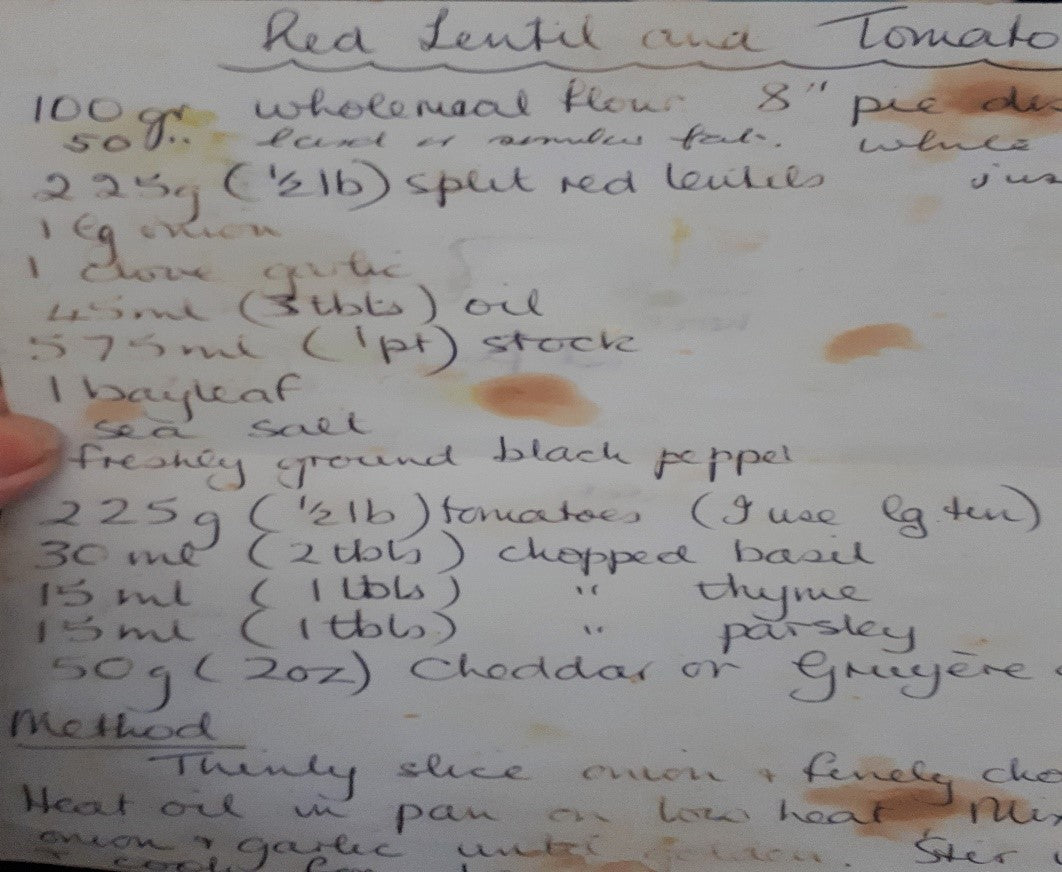 Red Lentil and Tomato
100 gr. wholemeal flour 8" pie
50 gr. lard or similar fat. whole
225g (½ lb) split red lentils jus
1 lg onion
1 clove garlic
45ml (3 tbls) oil
575ml (1pt) stock
1 bayleaf
sea salt
freshly ground black pepper
225g (½ lb) tomatoes (I use lg tin)
30 ml (2 tbls) chopped basil
15 ml (1 tbls) " thyme
15 ml (1 tbls) " parsley
50g (2oz) Cheddar or Gruyère
Method
Thinly slice onion + finely cho
Heat oil in pan on low heat Mix
onion + garlic until golden. Stir